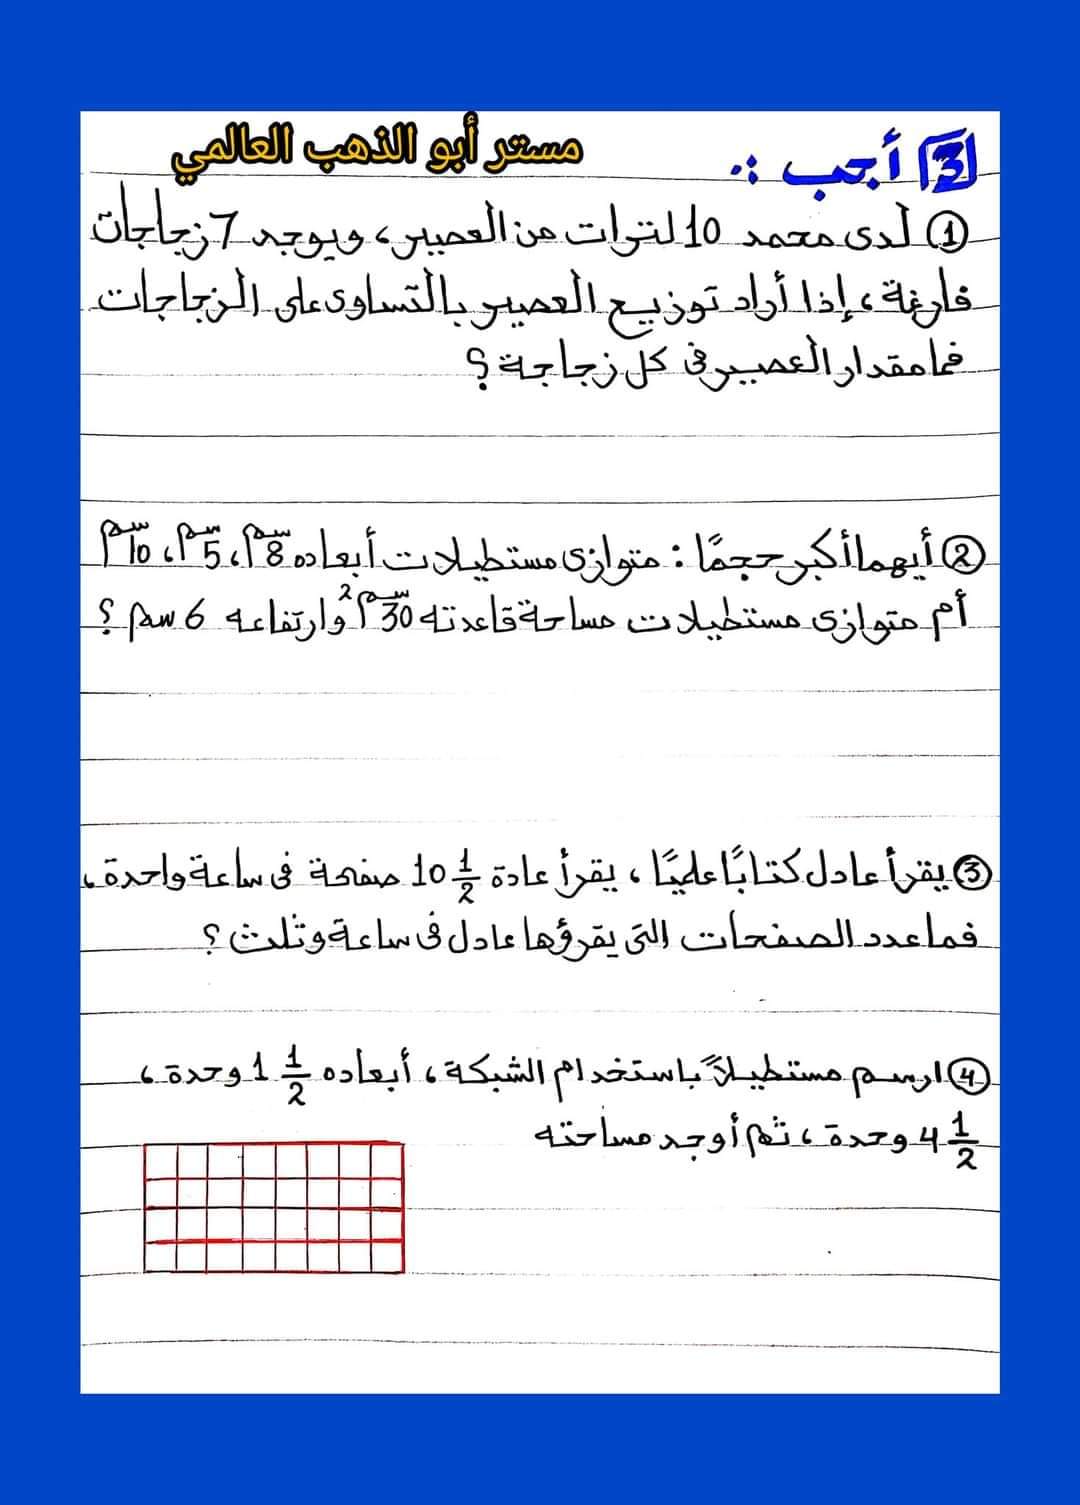 مستر أبو الذهب العالمي
3 أجب :-
① لدى محمد 10 لترات من العصير، ويوجد 7 زجاجات
فارغة، إذا أراد توزيع العصير بالتساوى على الزجاجات
فما مقدار العصير فى كل زجاجة؟
② أيهما أكبر حجمًا : متوازى مستطيلات أبعاده 8 سم، 5 سم، 10 سم
أم متوازى مستطيلات مساحة قاعدته 30 سم² وارتفاعه 6 سم ؟
③ يقرأ عادل كتابًا علميًا، يقرأ عادة 10 1/2 صفحة فى ساعة واحدة،
فما عدد الصفحات التى يقرؤها عادل فى ساعة وثلث ؟
④ ارسم مستطيلاً باستخدام الشبكة، أبعاده 1 1/2 وحدة،
4 1/2 وحدة، ثم أوجد مساحته